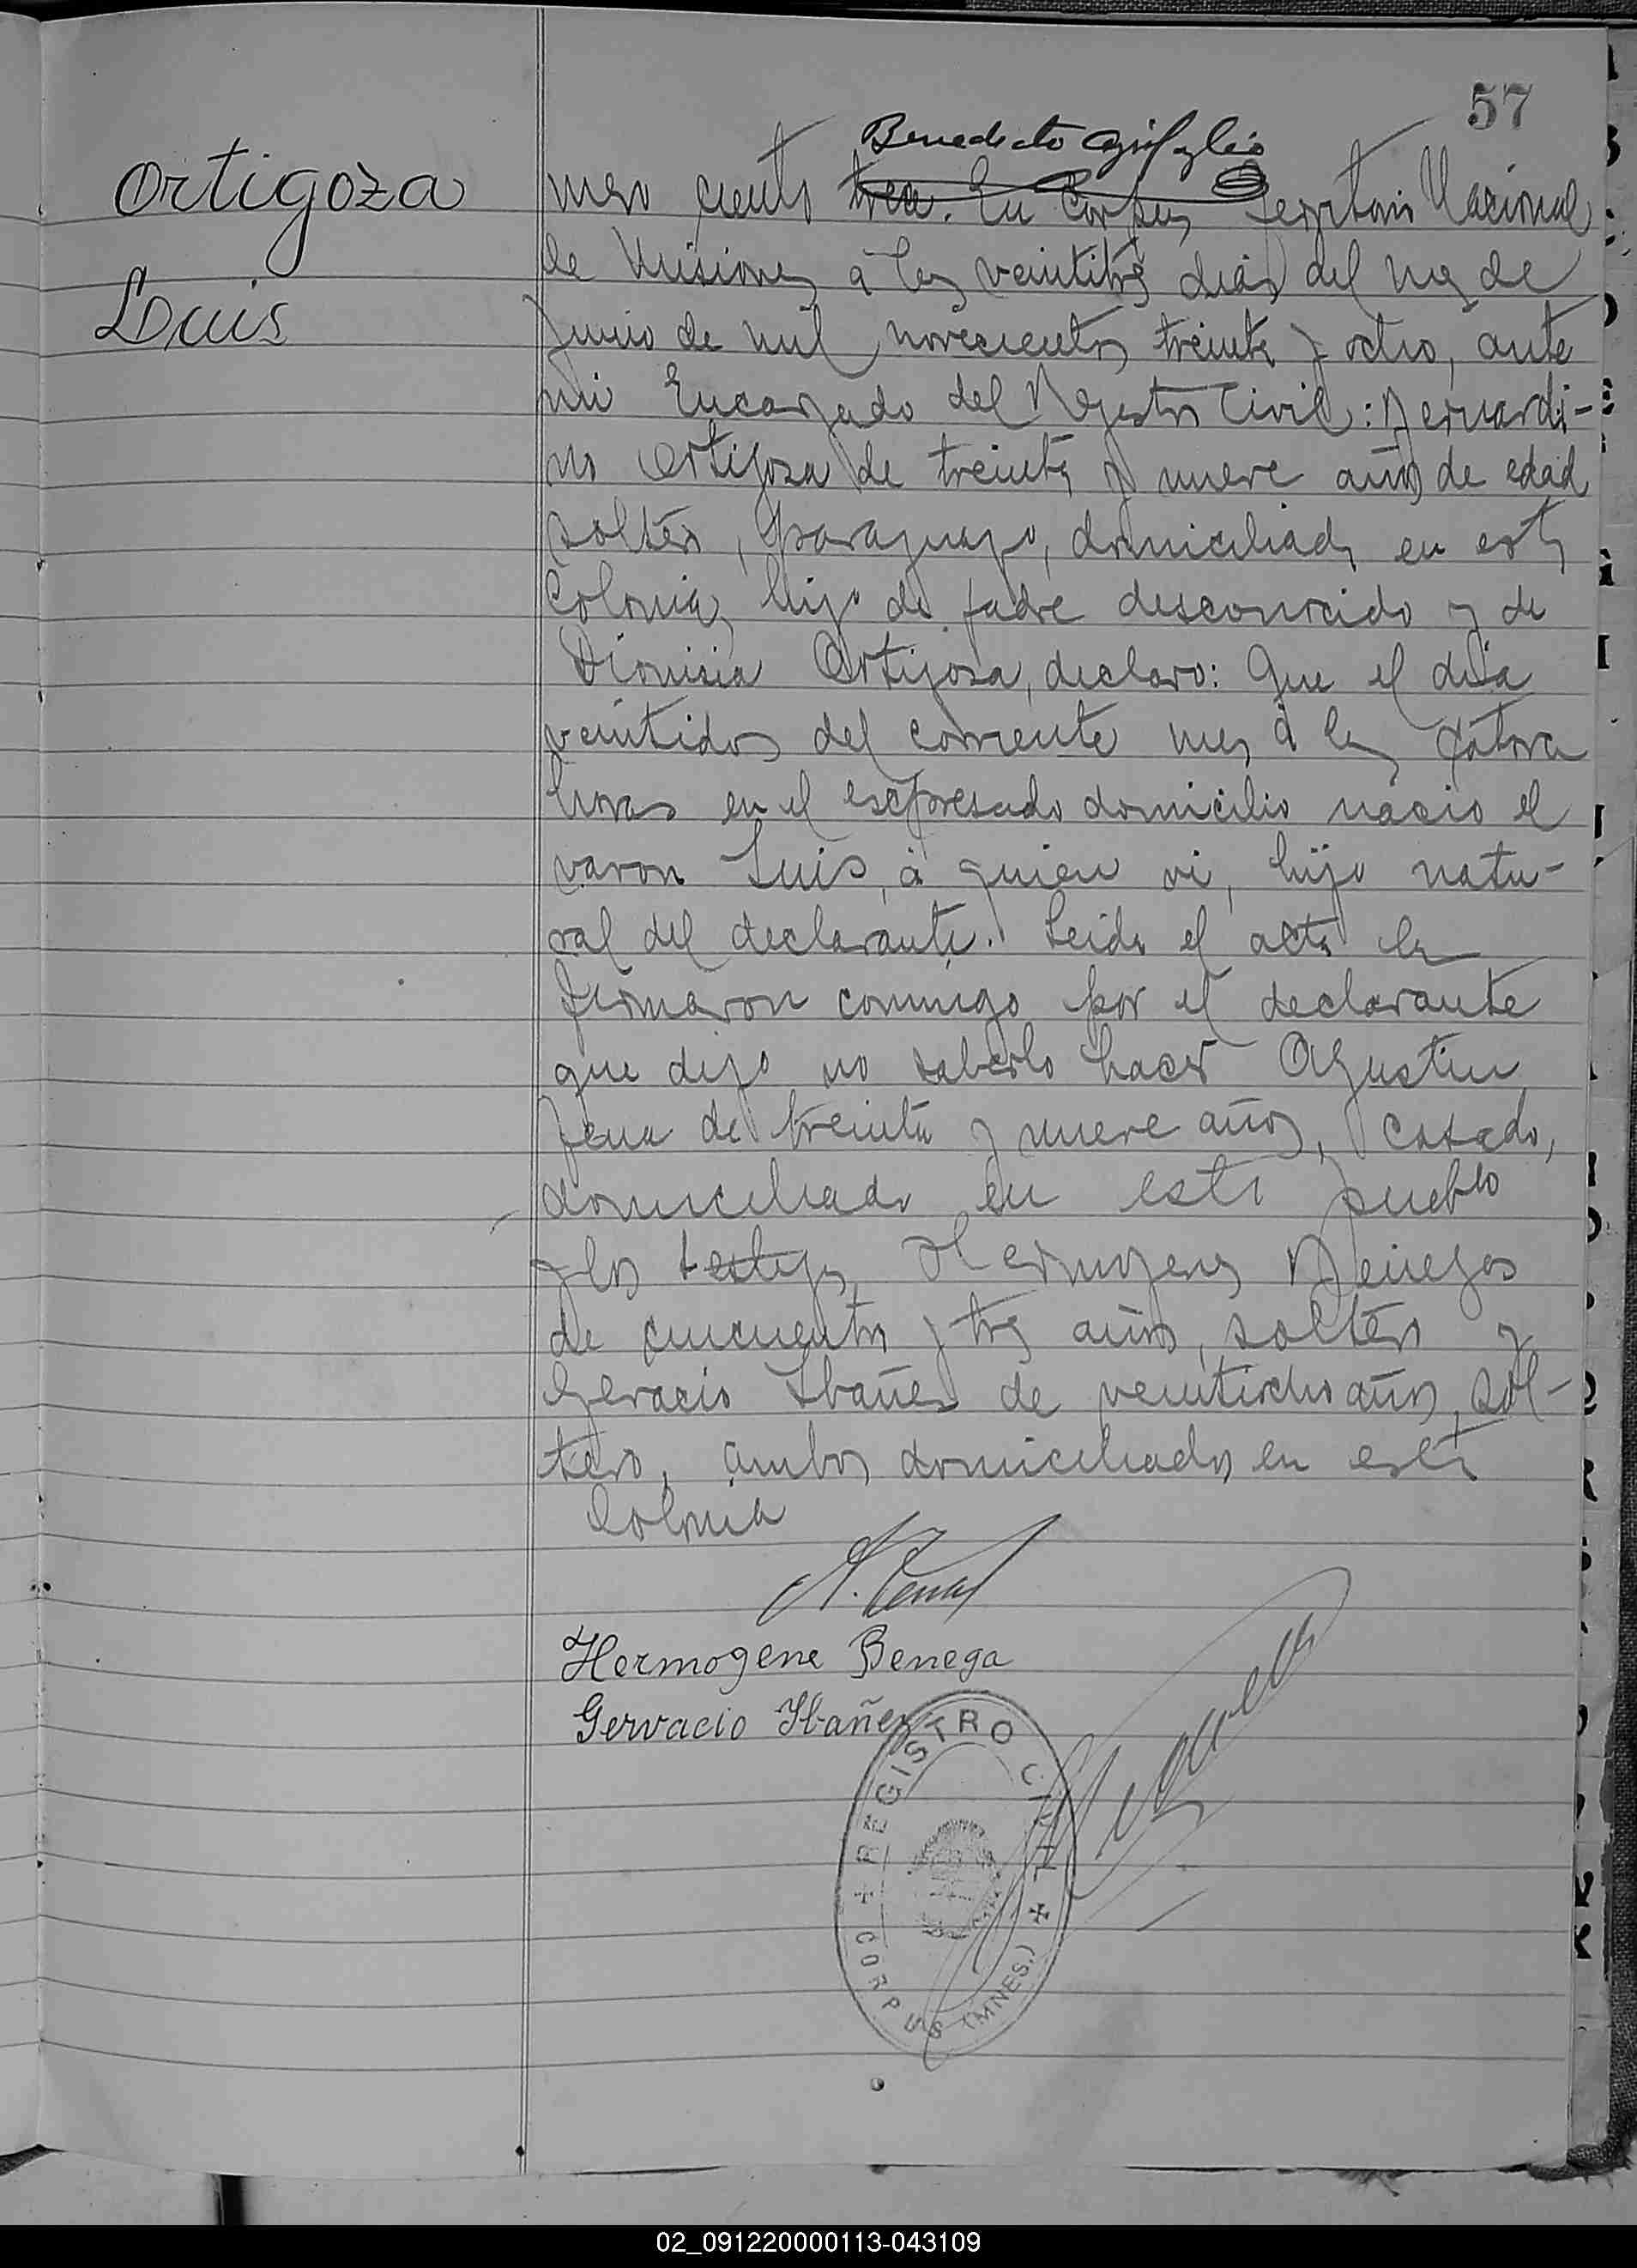 57
Benedicto
Ortigoza
Luis
mero ciento trece. En Corpus, Territorio Nacional
de Misiones a los veintitres dias del mes de
Junio de mil novecientos treinta y ocho, ante
mi Encargado del Registro Civil: Bernardi-
no Ortigosa de treinta y nueve años de edad
soltero, Paraguayo, domiciliado en esta
Colonia, hijo de padre desconocido y de
Dionisia Ortigosa, declaro: Que el dia
veintidos del corriente mes á las catorce
horas en el expresado domicilio nacio el
varon Luis, á quien vi, hijo natu-
ral del declarante. Leida el acta la
firmaron conmigo por el declarante
que dijo no saberlo hacer Agustin
Pena de treinta y nueve años, casado,
domiciliado en este pueblo
y los testigos Hermogenes Benegas
de cincuenta y tres años, soltero y
Gervacio Ibañez de veintiocho años, sol-
tero, ambos domiciliados en esta
Colonia
A. Pena
Hermogene Benega
Gervacio Ibañez
REGISTRO CIVIL
CORPUS (MNES.)
02_091220000113-043109